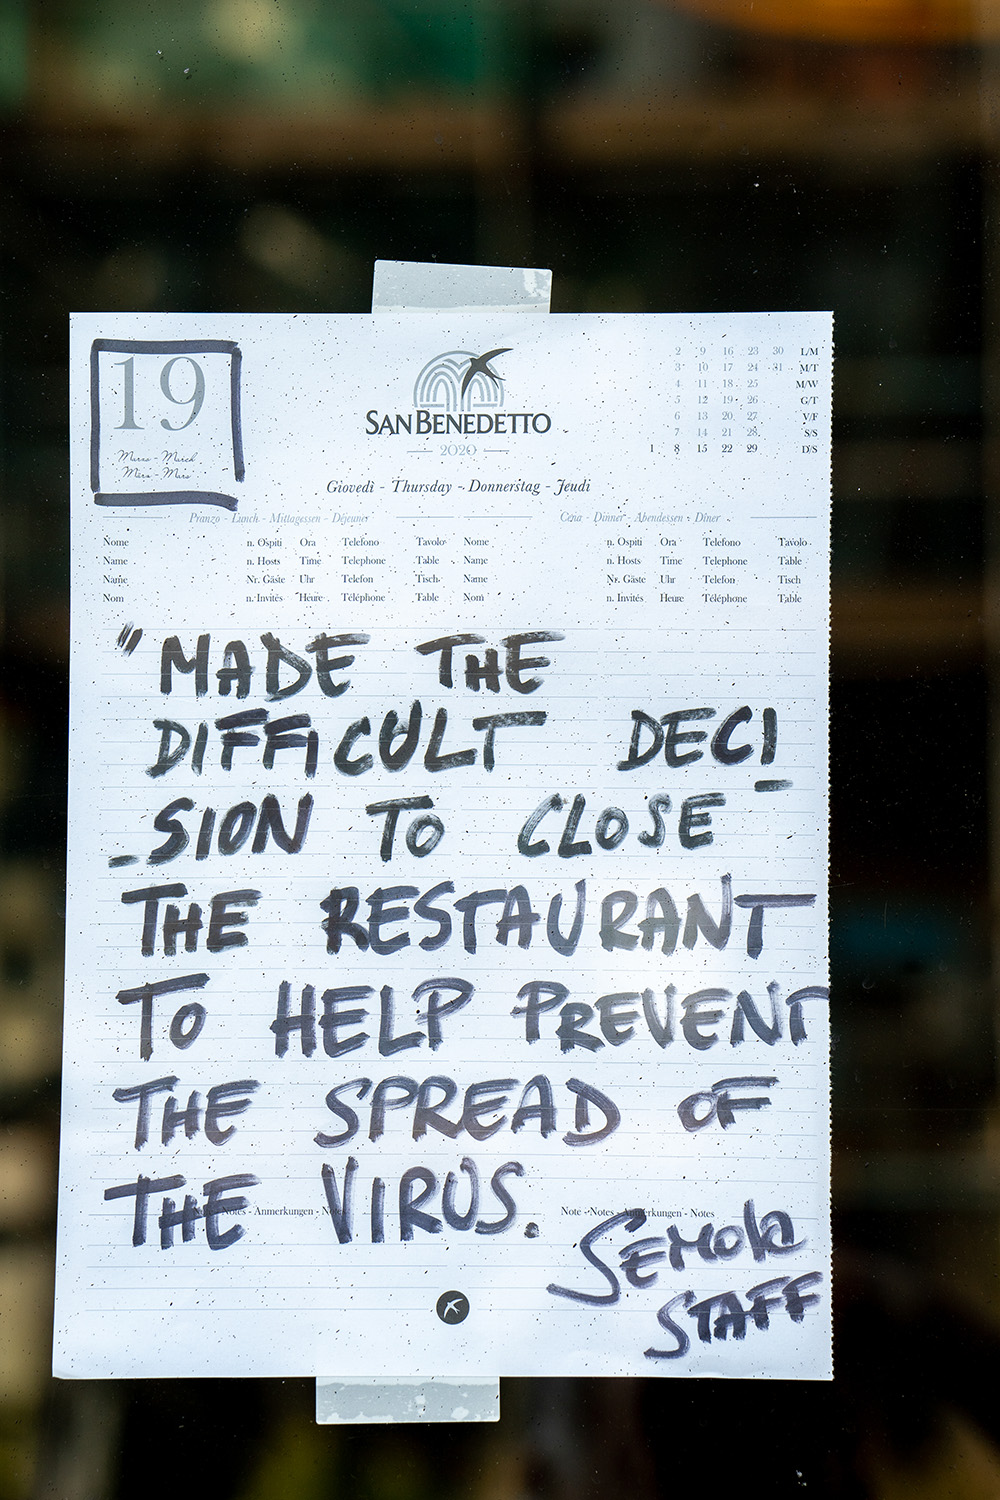 19
Marzo - March
März - Mars
SAN BENEDETTO
2020
Giovedì - Thursday - Donnerstag - Jeudi
2 9 16 23 30 L/M
3 10 17 24 31 M/T
4 11 18 25 M/W
5 12 19 26 G/T
6 13 20 27 V/F
7 14 21 28 S/S
1 8 15 22 29 D/S
Pranzo - Lunch - Mittagessen - Déjeuner
Cena - Dinner - Abendessen - Dîner
Nome n. Ospiti Ora Telefono Tavolo Nome n. Ospiti Ora Telefono Tavolo
Name n. Hosts Time Telephone Table Name n. Hosts Time Telephone Table
Name Nr. Gäste Uhr Telefon Tisch Name Nr. Gäste Uhr Telefon Tisch
Nom n. Invités Heure Téléphone Table Nom n. Invités Heure Téléphone Table
"MADE THE
DIFFICULT DECI-
-SION TO CLOSE
THE RESTAURANT
TO HELP PREVENT
THE SPREAD OF
THE VIRUS.
Notes - Anmerkungen - Notes
Note - Notes - Anmerkungen - Notes
SEMOLA
STAFF